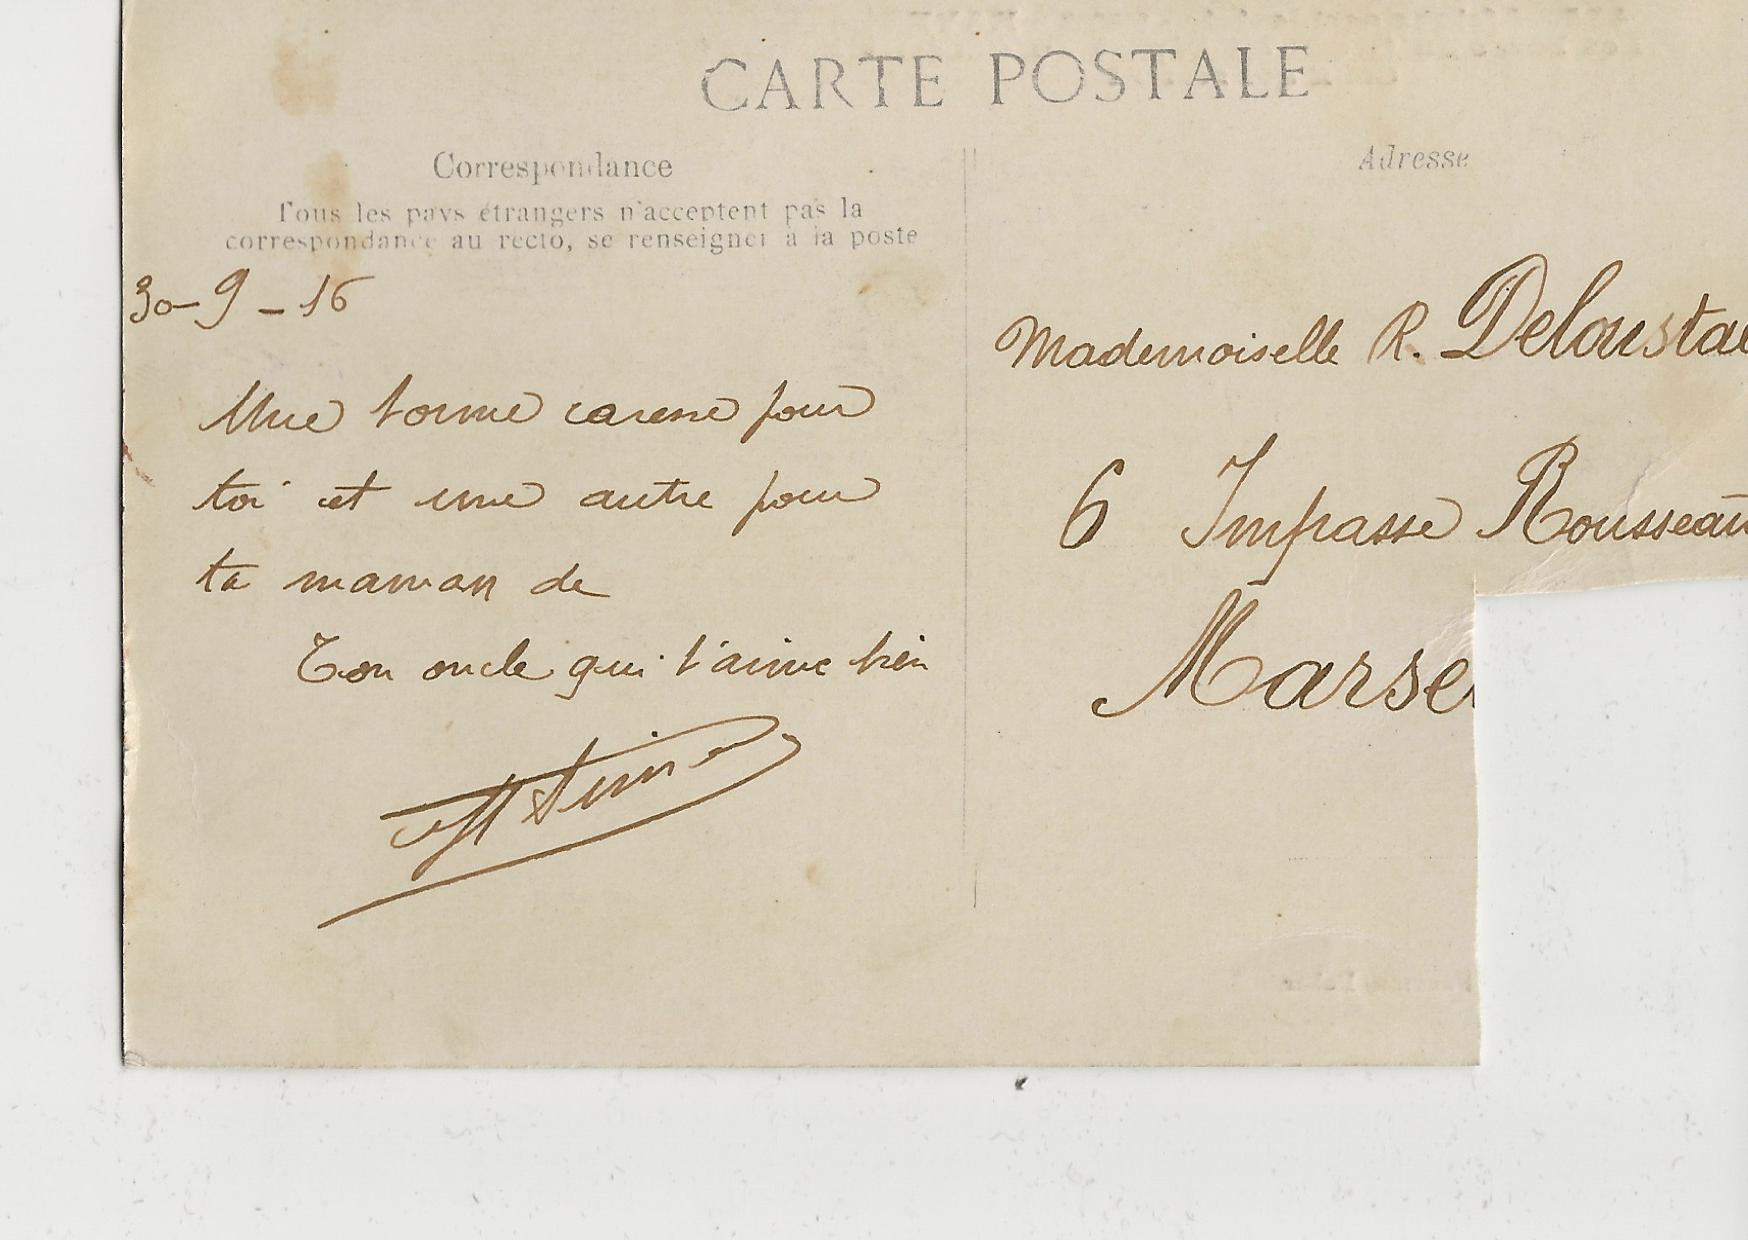 CARTE POSTALE
Correspondance
Tous les pays étrangers n'acceptent pas la
correspondance au recto, se renseigner à la poste
30-9-16
Une bonne caresse pour
toi et une autre pour
ta maman de
Ton oncle qui t'aime bien
Adresse
Mademoiselle R. Deloustal
6 Impasse Rousseau
Marse